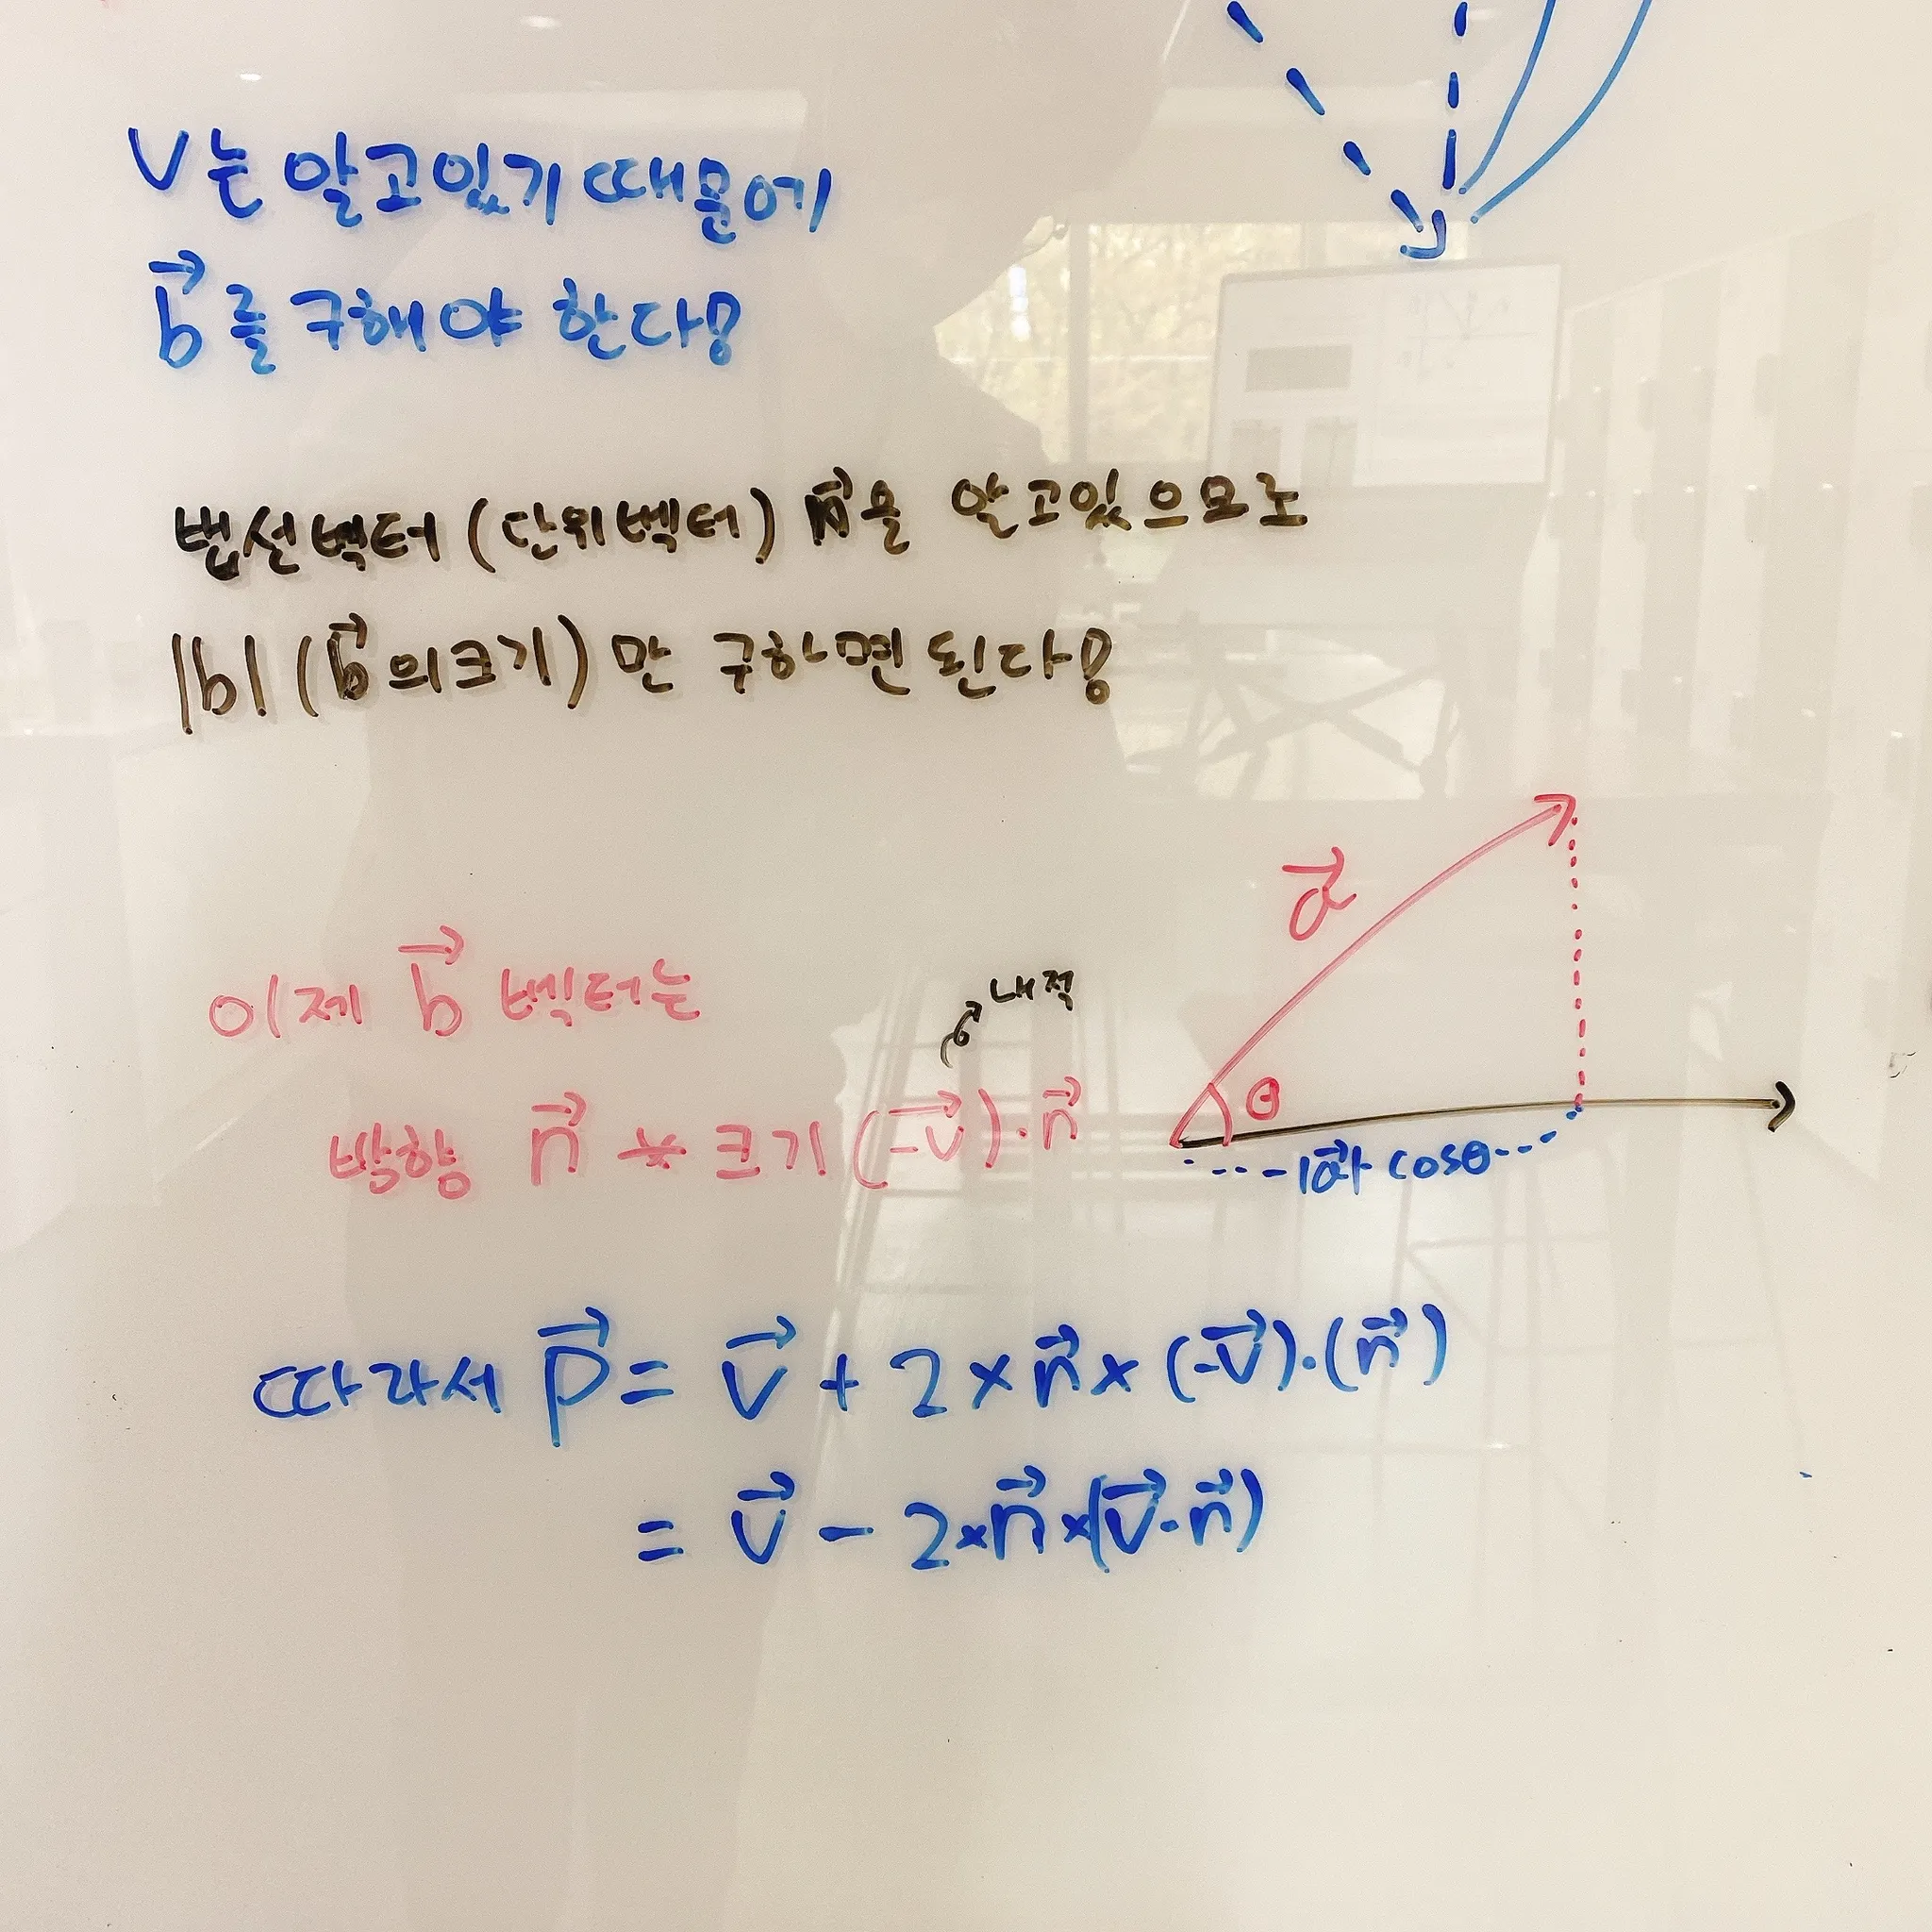 V는 알고있기 때문에
b⃗를 구해야 한다!
법선벡터 (단위벡터) n⃗을 알고있으므로
|b| (b⃗의크기) 만 구하면 된다!
a⃗
이제 b⃗ 벡터는
내적
방향 n⃗ * 크기 (-v⃗)·n⃗
θ
|a⃗| cosθ
따라서 p⃗ = v⃗ + 2 × n⃗ × (-v⃗)·(n⃗)
= v⃗ - 2×n⃗×(v⃗·n⃗)